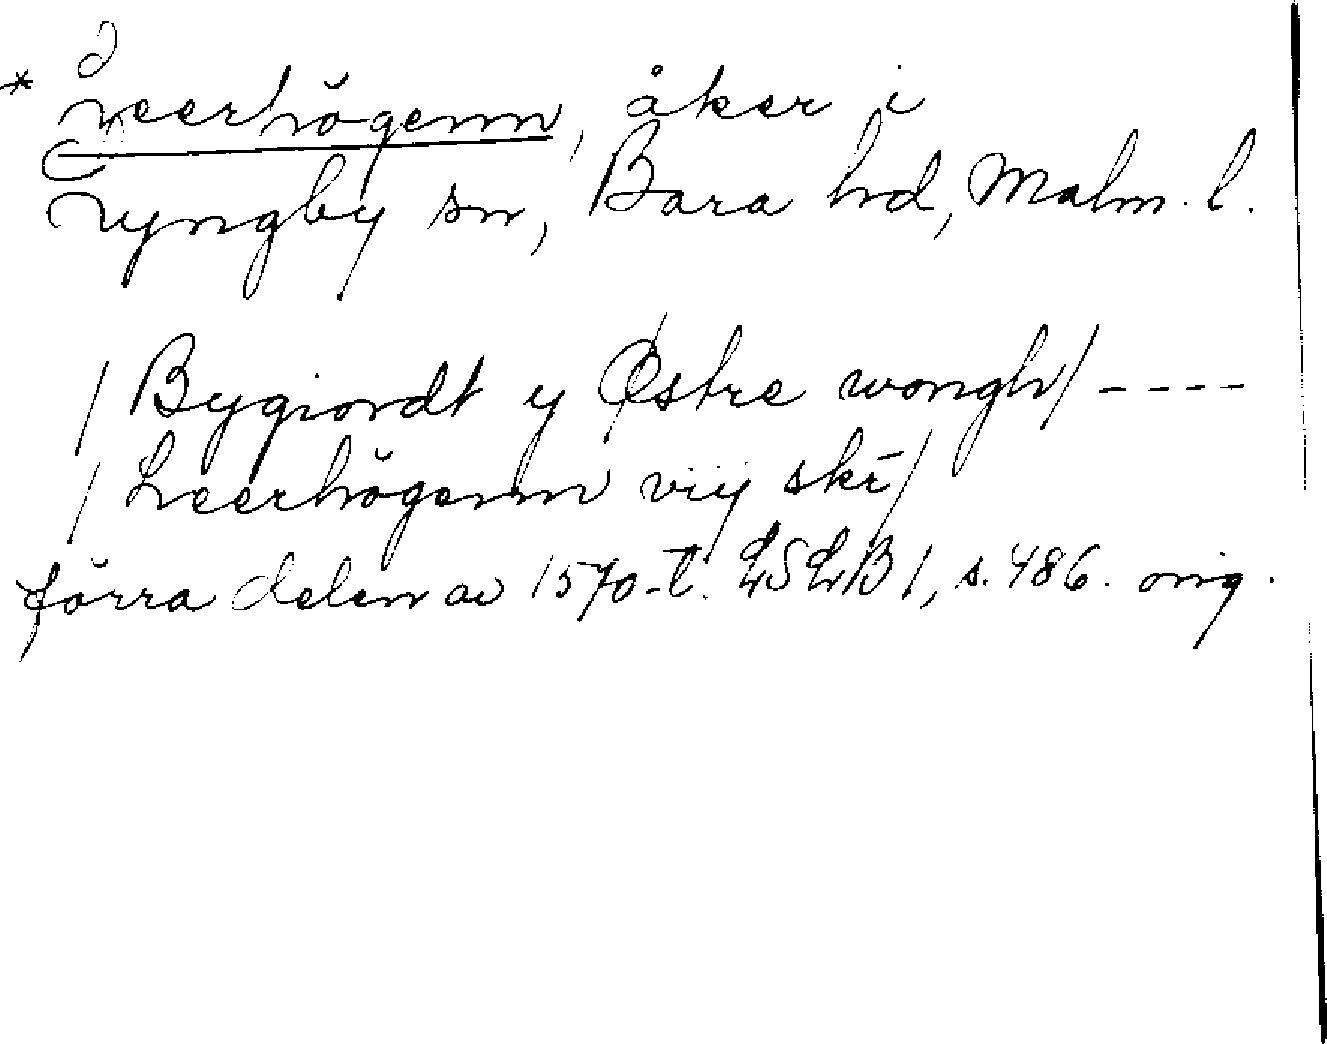 * Leerhögenn, åker i
Lyngby sn, Bara hd, Malm. l.
/ Bygiordt y Østre wongh/ ----
/ Leerhögenn viij skr̄/
förra delen av 1570-t. LSLB 1, s. 486. orig.